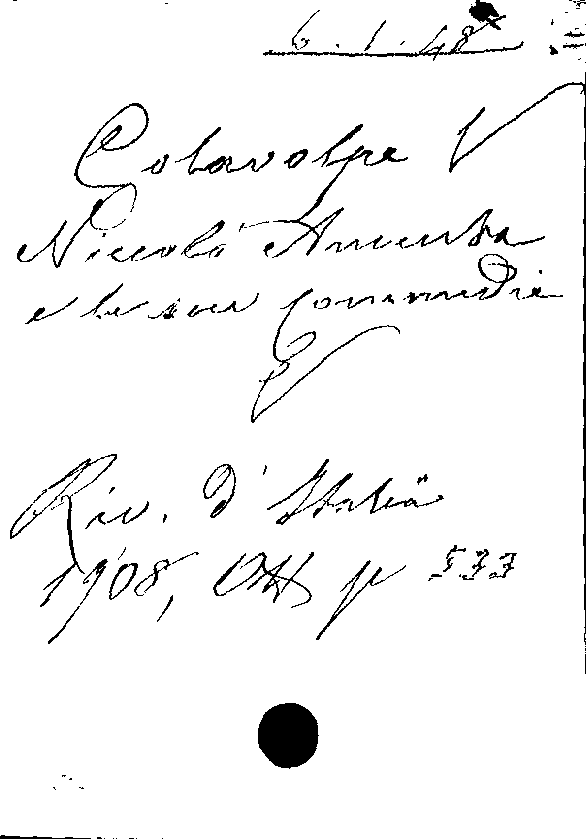 6.1.48
Colavolpe V
Niccolò Amenta
e le sue commedie
Riv. d'Italia
1908, Ott p 533